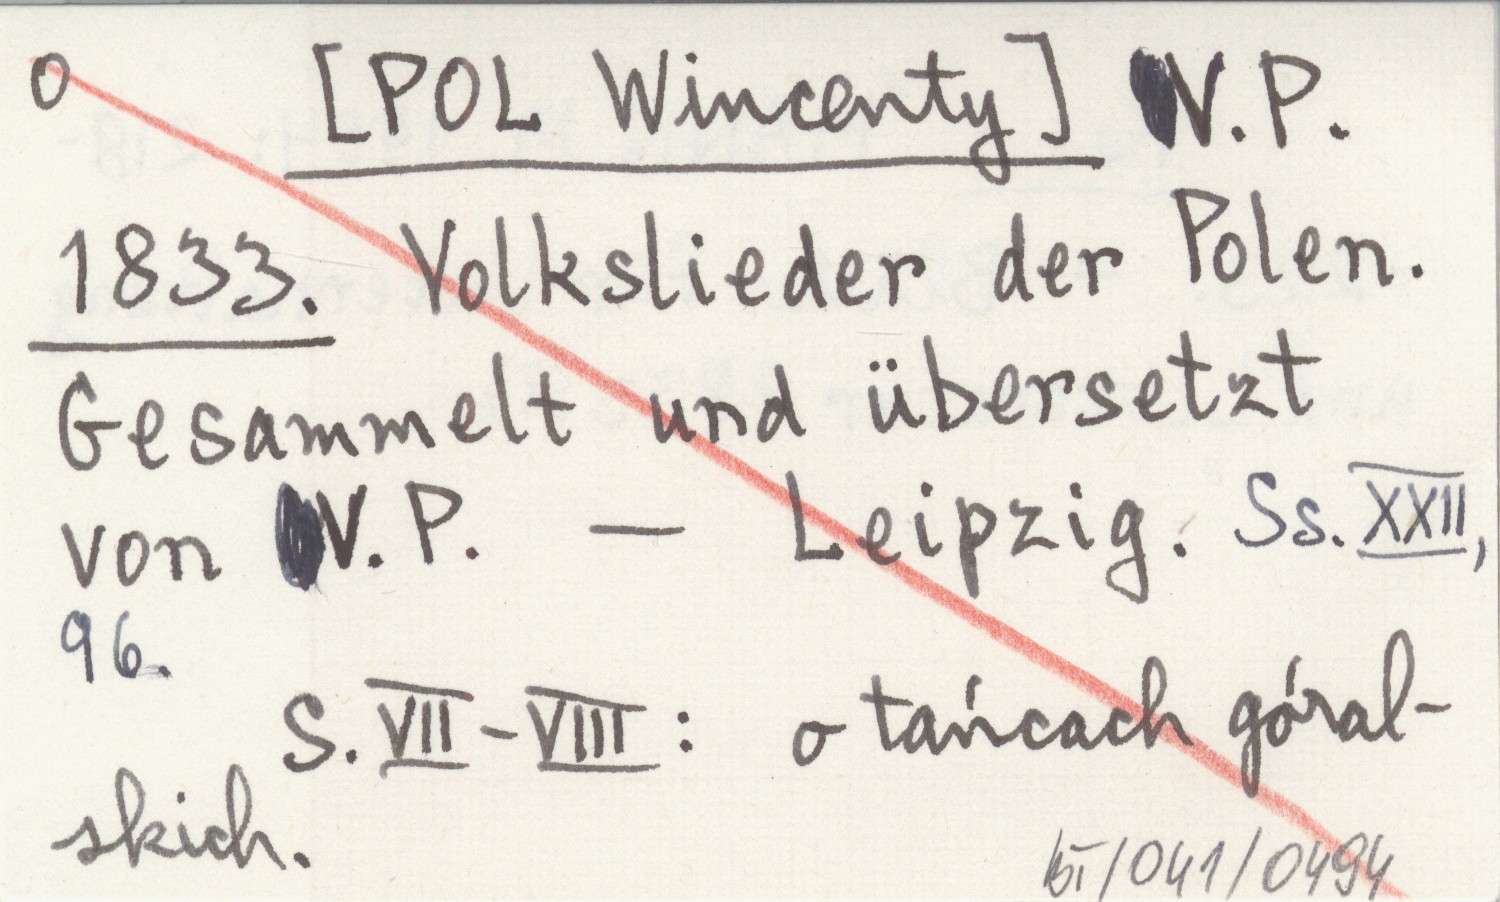 O [POL Wincenty] W.P.
1833. Volkslieder der Polen.
Gesammelt und übersetzt
von W.P. — Leipzig. Ss. XXII,
96.
S. VII-VIII: o tańcach góral-
skich.
/041/0494